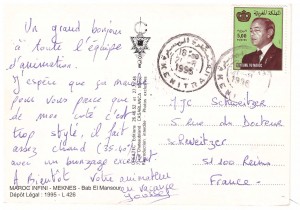 Un grand bonjour
à toute l'équipe
d'animation.
J'espère que ça marche
pour vous parce que
de mon côté c'est
trop stylé, il fait
assez chaud (35-40°)
avec un bronzage excellent
A Bientôt votre animateur
en vacance
MJC Schweitzer
5, rue du Docteur
Schweitzer
51 100 Reims
France
المملكة المغربية
ROYAUME DU MAROC
KENITRA
1996
MAROC INFINI - MEKNES - Bab El Mansour
Dépôt Légal : 1995 - L.426